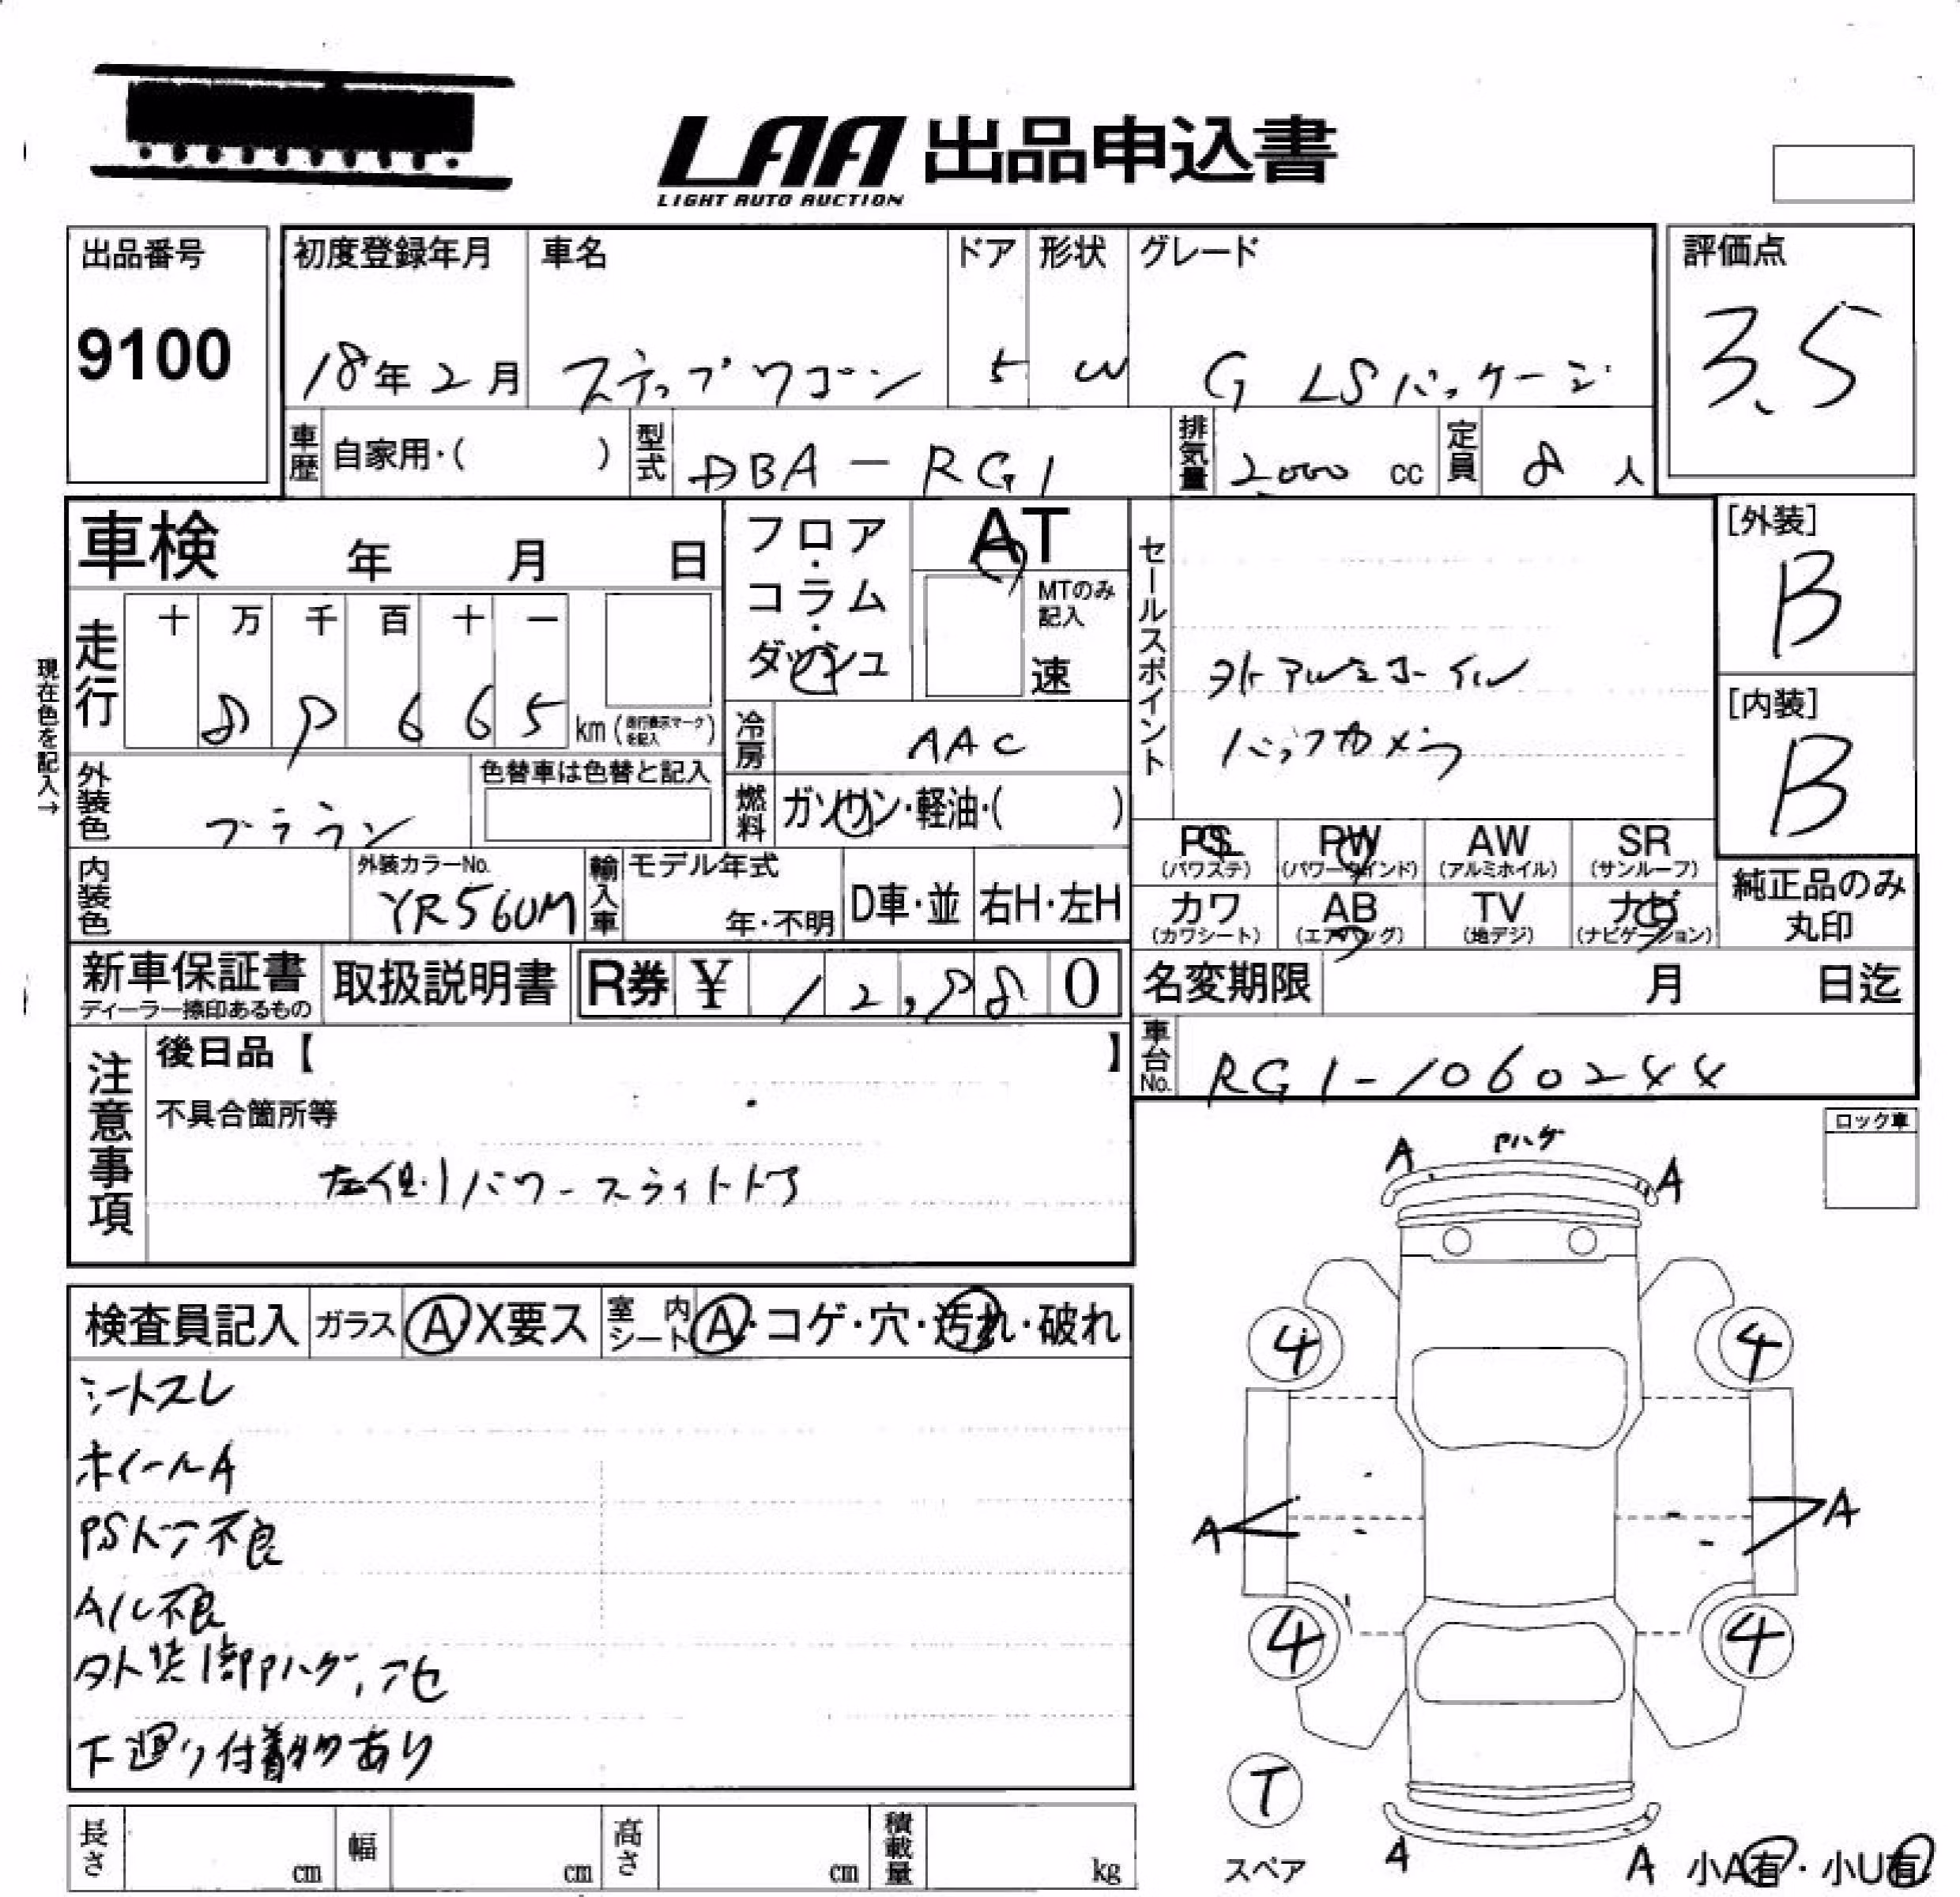 LAA 出品申込書
LIGHT AUTO AUCTION
出品番号
9100
初度登録年月
18年 2月
車名
ステップワゴン
ドア
5
形状
W
グレード
G LSパッケージ
評価点
3.5
車歴 自家用・( )
型式 DBA-RG1
排気量 2000 cc
定員 8 人
車検 年 月 日
フロア・コラム・ダッシュ
AT
MTのみ記入
速
セールスポイント
外アルミホイル
バックカメラ
[外装]
B
[内装]
B
現在色を記入→
走行
十 万 千 百 十 一
8 9 6 6 5 km (走行表示マークを記入)
冷房 AAC
外装色
色替車は色替と記入
燃料 ガソリン・軽油・( )
PS (パワステ)
PW (パワーウインド)
AW (アルミホイル)
SR (サンルーフ)
カワ (カワシート)
AB (エアバッグ)
TV (地デジ)
ナビ (ナビゲーション)
純正品のみ丸印
内装色
外装カラーNo.
YR560M
輸入車 モデル年式
年・不明
D車・並
右H・左H
新車保証書
ディーラー捺印あるもの
取扱説明書
R券 ¥ 12,980
名変期限 月 日迄
車台No. RG1-1060244
注意事項
後日品【 】
不具合箇所等
左側パワースライドドア
ロック車
検査員記入
ガラス A X要ス
室内シート A・コゲ・穴・汚れ・破れ
シートスレ
ホイールA
PSドア不良
A/C不良
外装1部Pハゲ,アセ
下廻り付着物あり
A Pハゲ A
4 4
A A
4 4
T
スペア
A A
小A有・小U有
長さ cm
幅 cm
高さ cm
積載量 kg